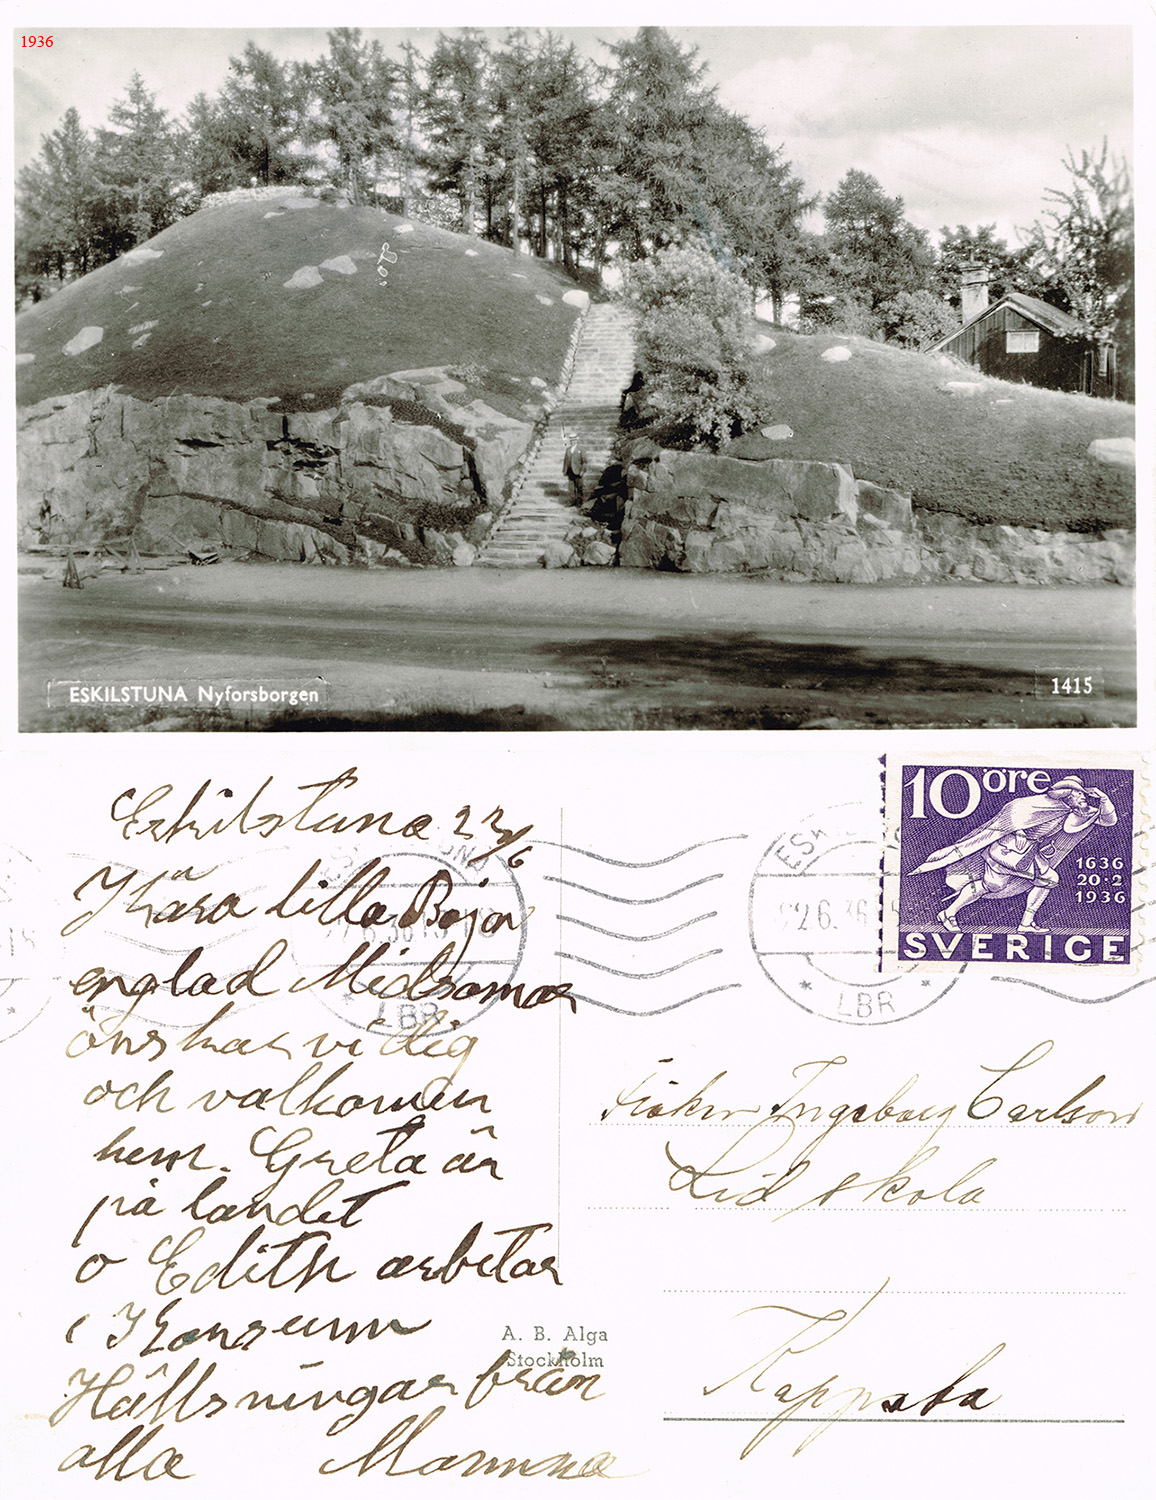 1936
ESKILSTUNA Nyforsborgen
1415
Eskilstuna 22/6
Kära lilla Bojan
englad Midsomar
önskar vi dig
och valkomen
hem. Greta är
på landet
o Edith arbetar
i Konsum
Hällsningar från
alla Mamma
A. B. Alga
Stockholm
10 öre
1636
20·2
1936
SVERIGE
22.6.36
LBR
Fröken Ingeborg Carlson
Lid skola